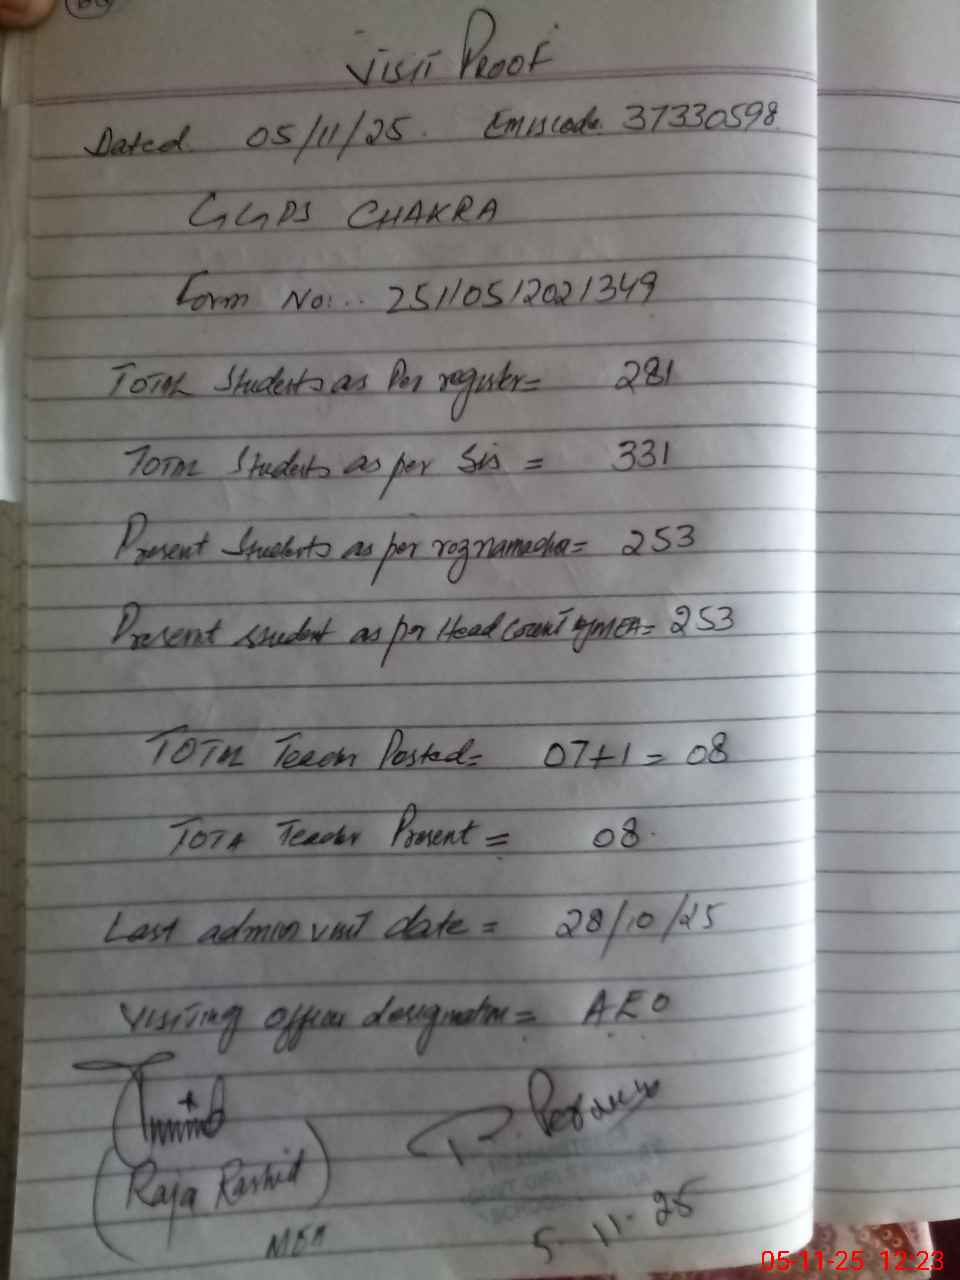 Visit Proof
Dated 05/11/25. Emiscode. 37330598
GGPS CHAKRA
Form No:.. 25110512021349
Total Students as Per register= 281
Total Students as per Sis = 331
Present Students as per roznamcha= 253
Present student as per Head Count by MEA= 253
Total Teacher Posted= 07+1 = 08
Tota Teacher Present = 08.
Last admin visit date = 28/10/25
Visiting officer designation= AEO
(Raja Rashid)
MEA
5-11-25
05-11-25 12:23